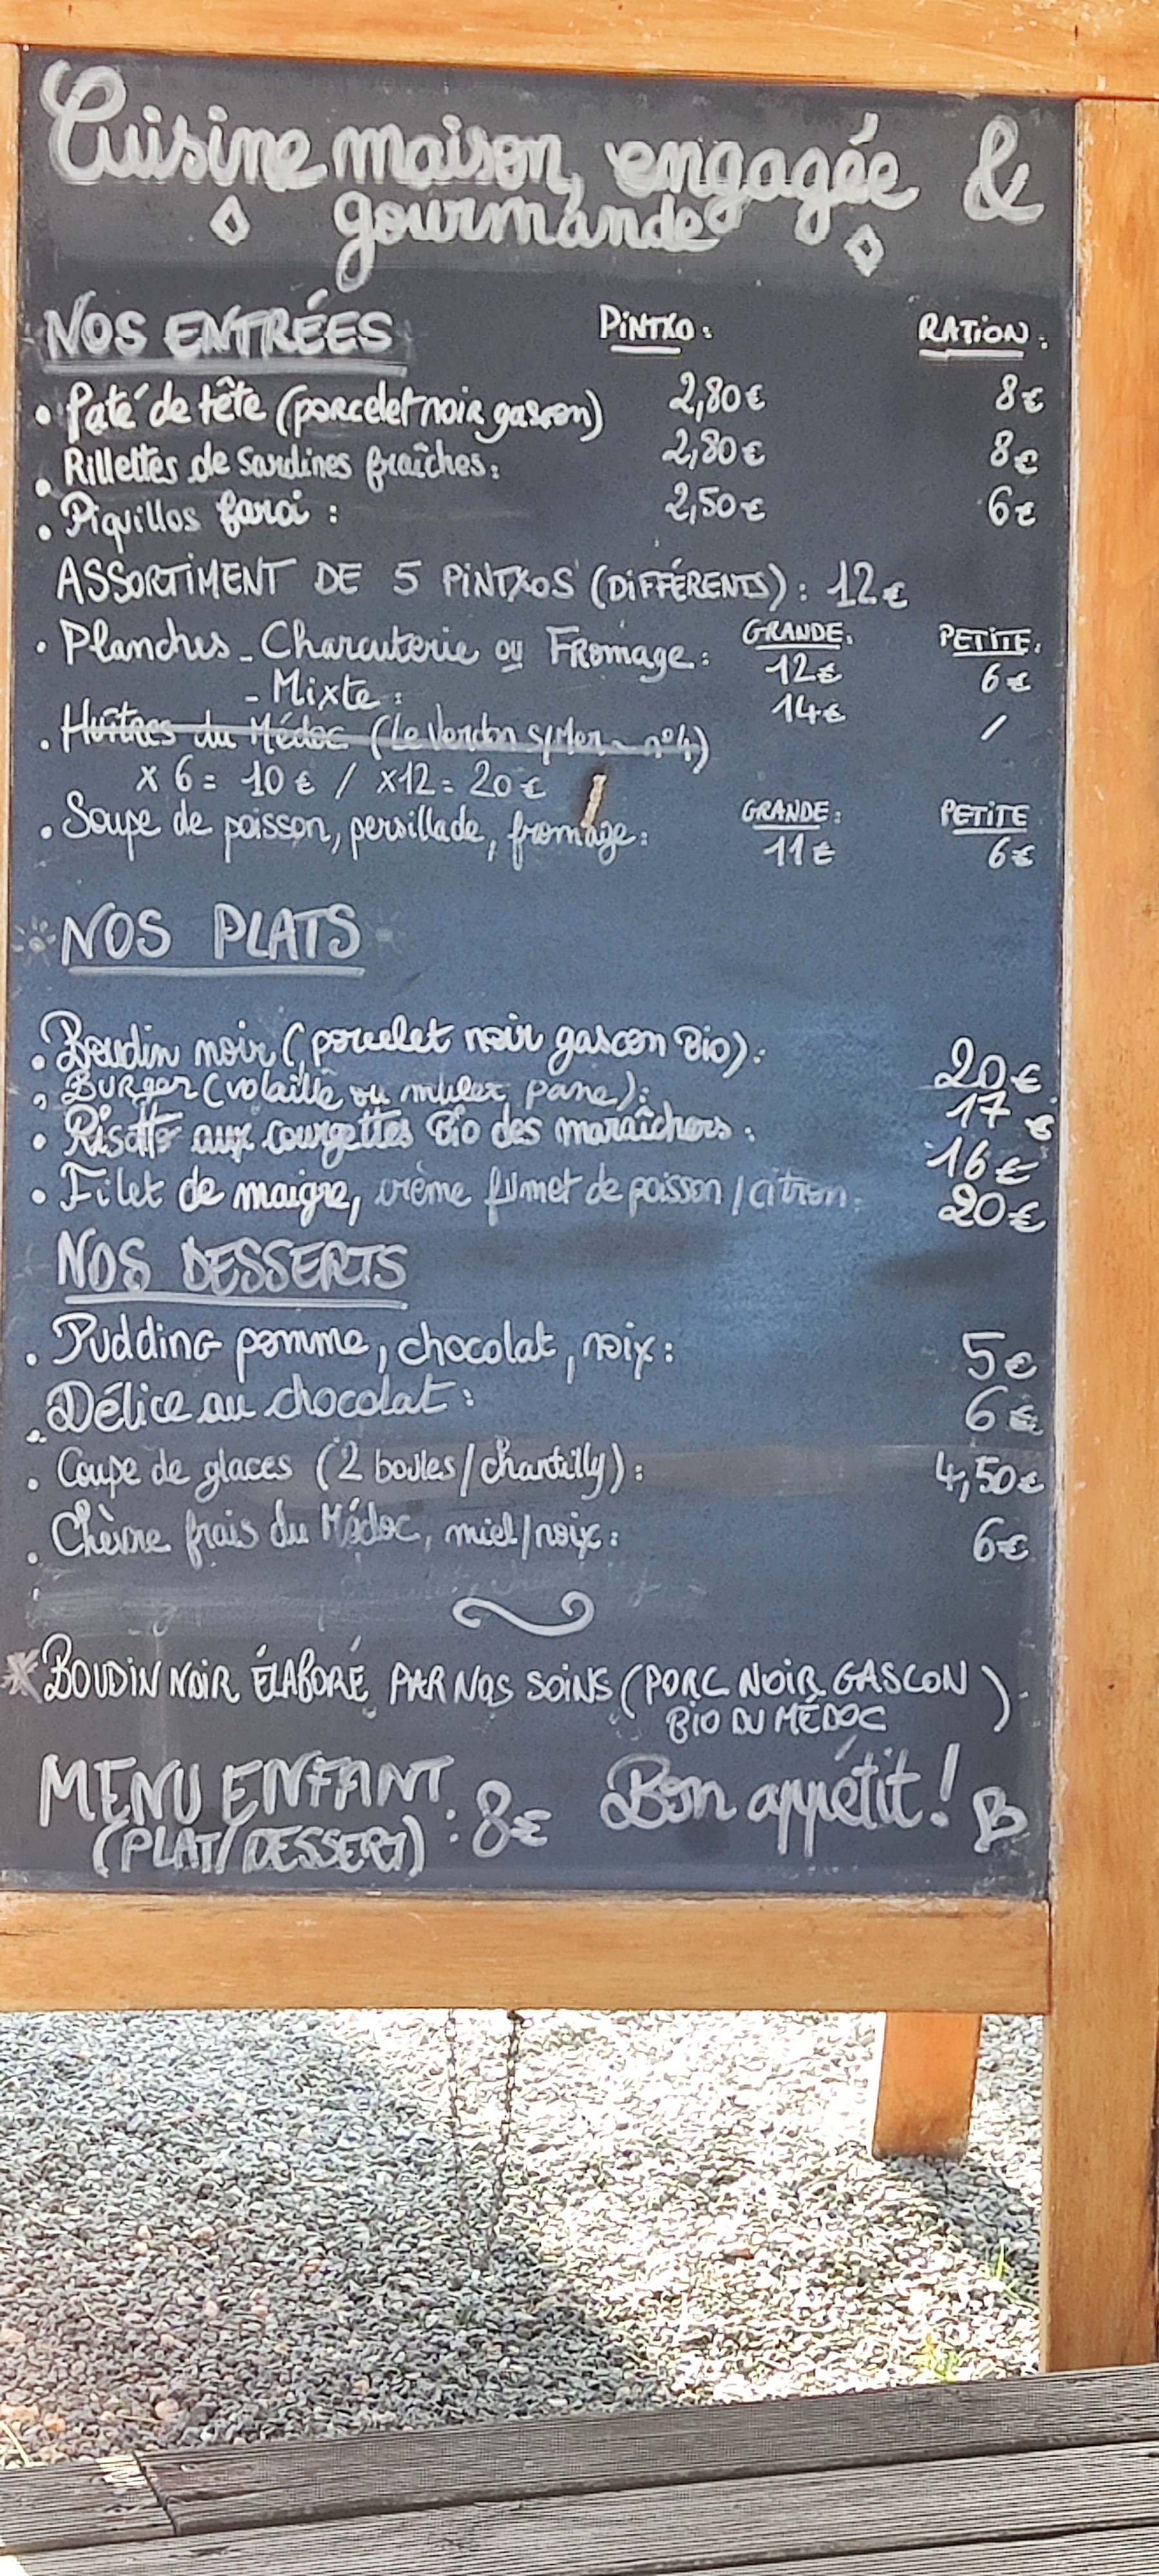 Cuisine maison, engagée &
gourmande
NOS ENTRÉES PiNTXO: RATiON:
• Paté de tête (porcelet noir gascon) 2,80€ 8€
• Rillettes de Sardines fraîches: 2,80€ 8€
• Piquillos farci: 2,50€ 6€
ASSORTiMENT DE 5 PiNTXOS (DiFFÉRENTS): 12€
• Planches - Charcuterie ou Fromage: GRANDE. 12€ PETiTE. 6€
- Mixte: 14€ /
• Huîtres du Médoc (Le Verdon s/Mer ~ n°4)
x 6 = 10€ / x12 = 20€
• Soupe de poisson, persillade, fromage: GRANDE: 11€ PETiTE 6€
NOS PLATS
• Boudin noir (porcelet noir gascon Bio): 20€
• BURGER (volaille ou mulet pané): 17€
• Risotto aux courgettes Bio des maraîchers: 16€
• Filet de maigre, crème fumet de poisson / citron. 20€
NOS DESSERTS
• Pudding pomme, chocolat, noix: 5€
• Délice au chocolat: 6€
• Coupe de glaces (2 boules / chantilly): 4,50€
• Chèvre frais du Médoc, miel/noix: 6€
*BOUDiN NOiR ÉLABORÉ PAR NOS SOiNS (PORC NOiR GASCON
BiO DU MÉDOC)
MENU ENFANT : 8€ Bon appétit!
(PLAT/DESSERT)